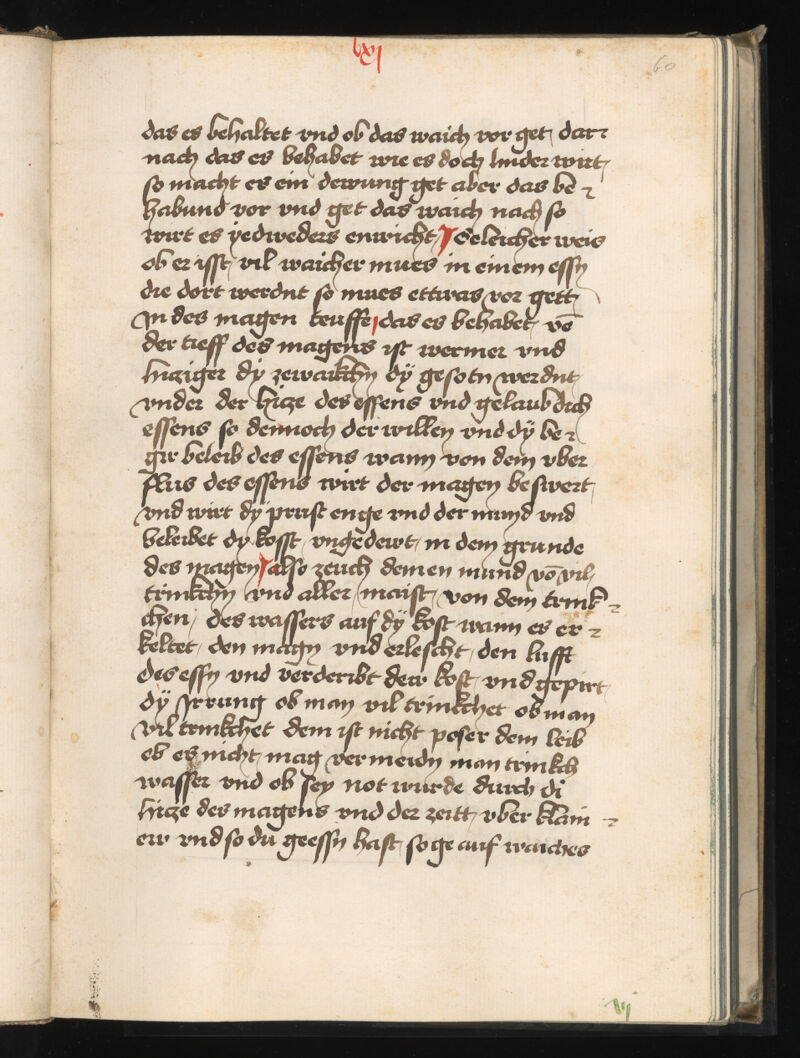 lxi
60
das es behaltet vnd ob das waich vor get dar⸗
nach das es behabet wie es doch linder wirt
so macht es ein dewung get aber das be⸗
habund vor vnd get das waich nach so
wirt es yedweders enwicht Geleicher weis
ob er isst vil waicher mues in einem essn
die dort werdnt so mues ettwas vor gett
In des magen teuffe das es behabet vō
der tieff des magens ist wermer vnd
hicziger dÿ zewaikchn dÿ gesotn werdnt
vnder der hicze des essens vnd gelaub dich
essens so dennoch der willen vnd dÿ be⸗
gir beleib des essens wann von dem vber
flus des essens wirt der magen beswert
vnd wirt dÿ prust enge vnd der mund vnd
beleibet dy kosst vngedewt in dem grunde
des magen also zeuch deinen mund vō vil
trinkchn vnd aller maist von dem trink⸗
chen des wassers auf dÿ kost wann es er⸗
keltet den magn vnd erlescht den lufft
des essn vnd verderibt dew kost vnd gepirt
dÿ irrung ob man vil trinkchet ob man
vil trinkchet dem ist nicht poser dem leib
ob es nicht mag vermeidn man trinkch
wasser vnd ob sey not wurde durch di
hicze des magens vnd der zeitt vber klain⸗
ew vnd so du geessn hast so ge auf waiches